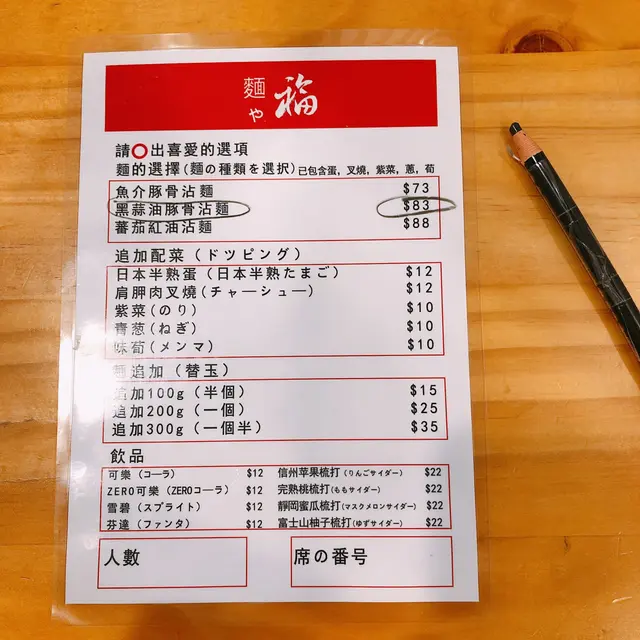 麵や 福
請⭕出喜愛的選項
麵的選擇(麵の種類を選択)已包含蛋, 叉燒, 紫菜, 蔥, 荀
魚介豚骨沾麵 $73
黑蒜油豚骨沾麵 $83
蕃茄紅油沾麵 $88
追加配菜(ドツピング)
日本半熟蛋(日本半熟たまご) $12
肩胛肉叉燒(チャーシュー) $12
紫菜(のり) $10
青葱(ねぎ) $10
味荀(メンマ) $10
麵追加(替玉)
追加100g(半個) $15
追加200g(一個) $25
追加300g(一個半) $35
飲品
可樂(コーラ) $12 信州苹果梳打(りんごサイダー) $22
ZERO可樂(ZEROコーラ) $12 完熟桃梳打(ももサイダー) $22
雪碧(スプライト) $12 靜岡蜜瓜梳打(マスクメロンサイダー) $22
芬達(ファンタ) $12 富士山柚子梳打(ゆずサイダー) $22
人數 席の番号